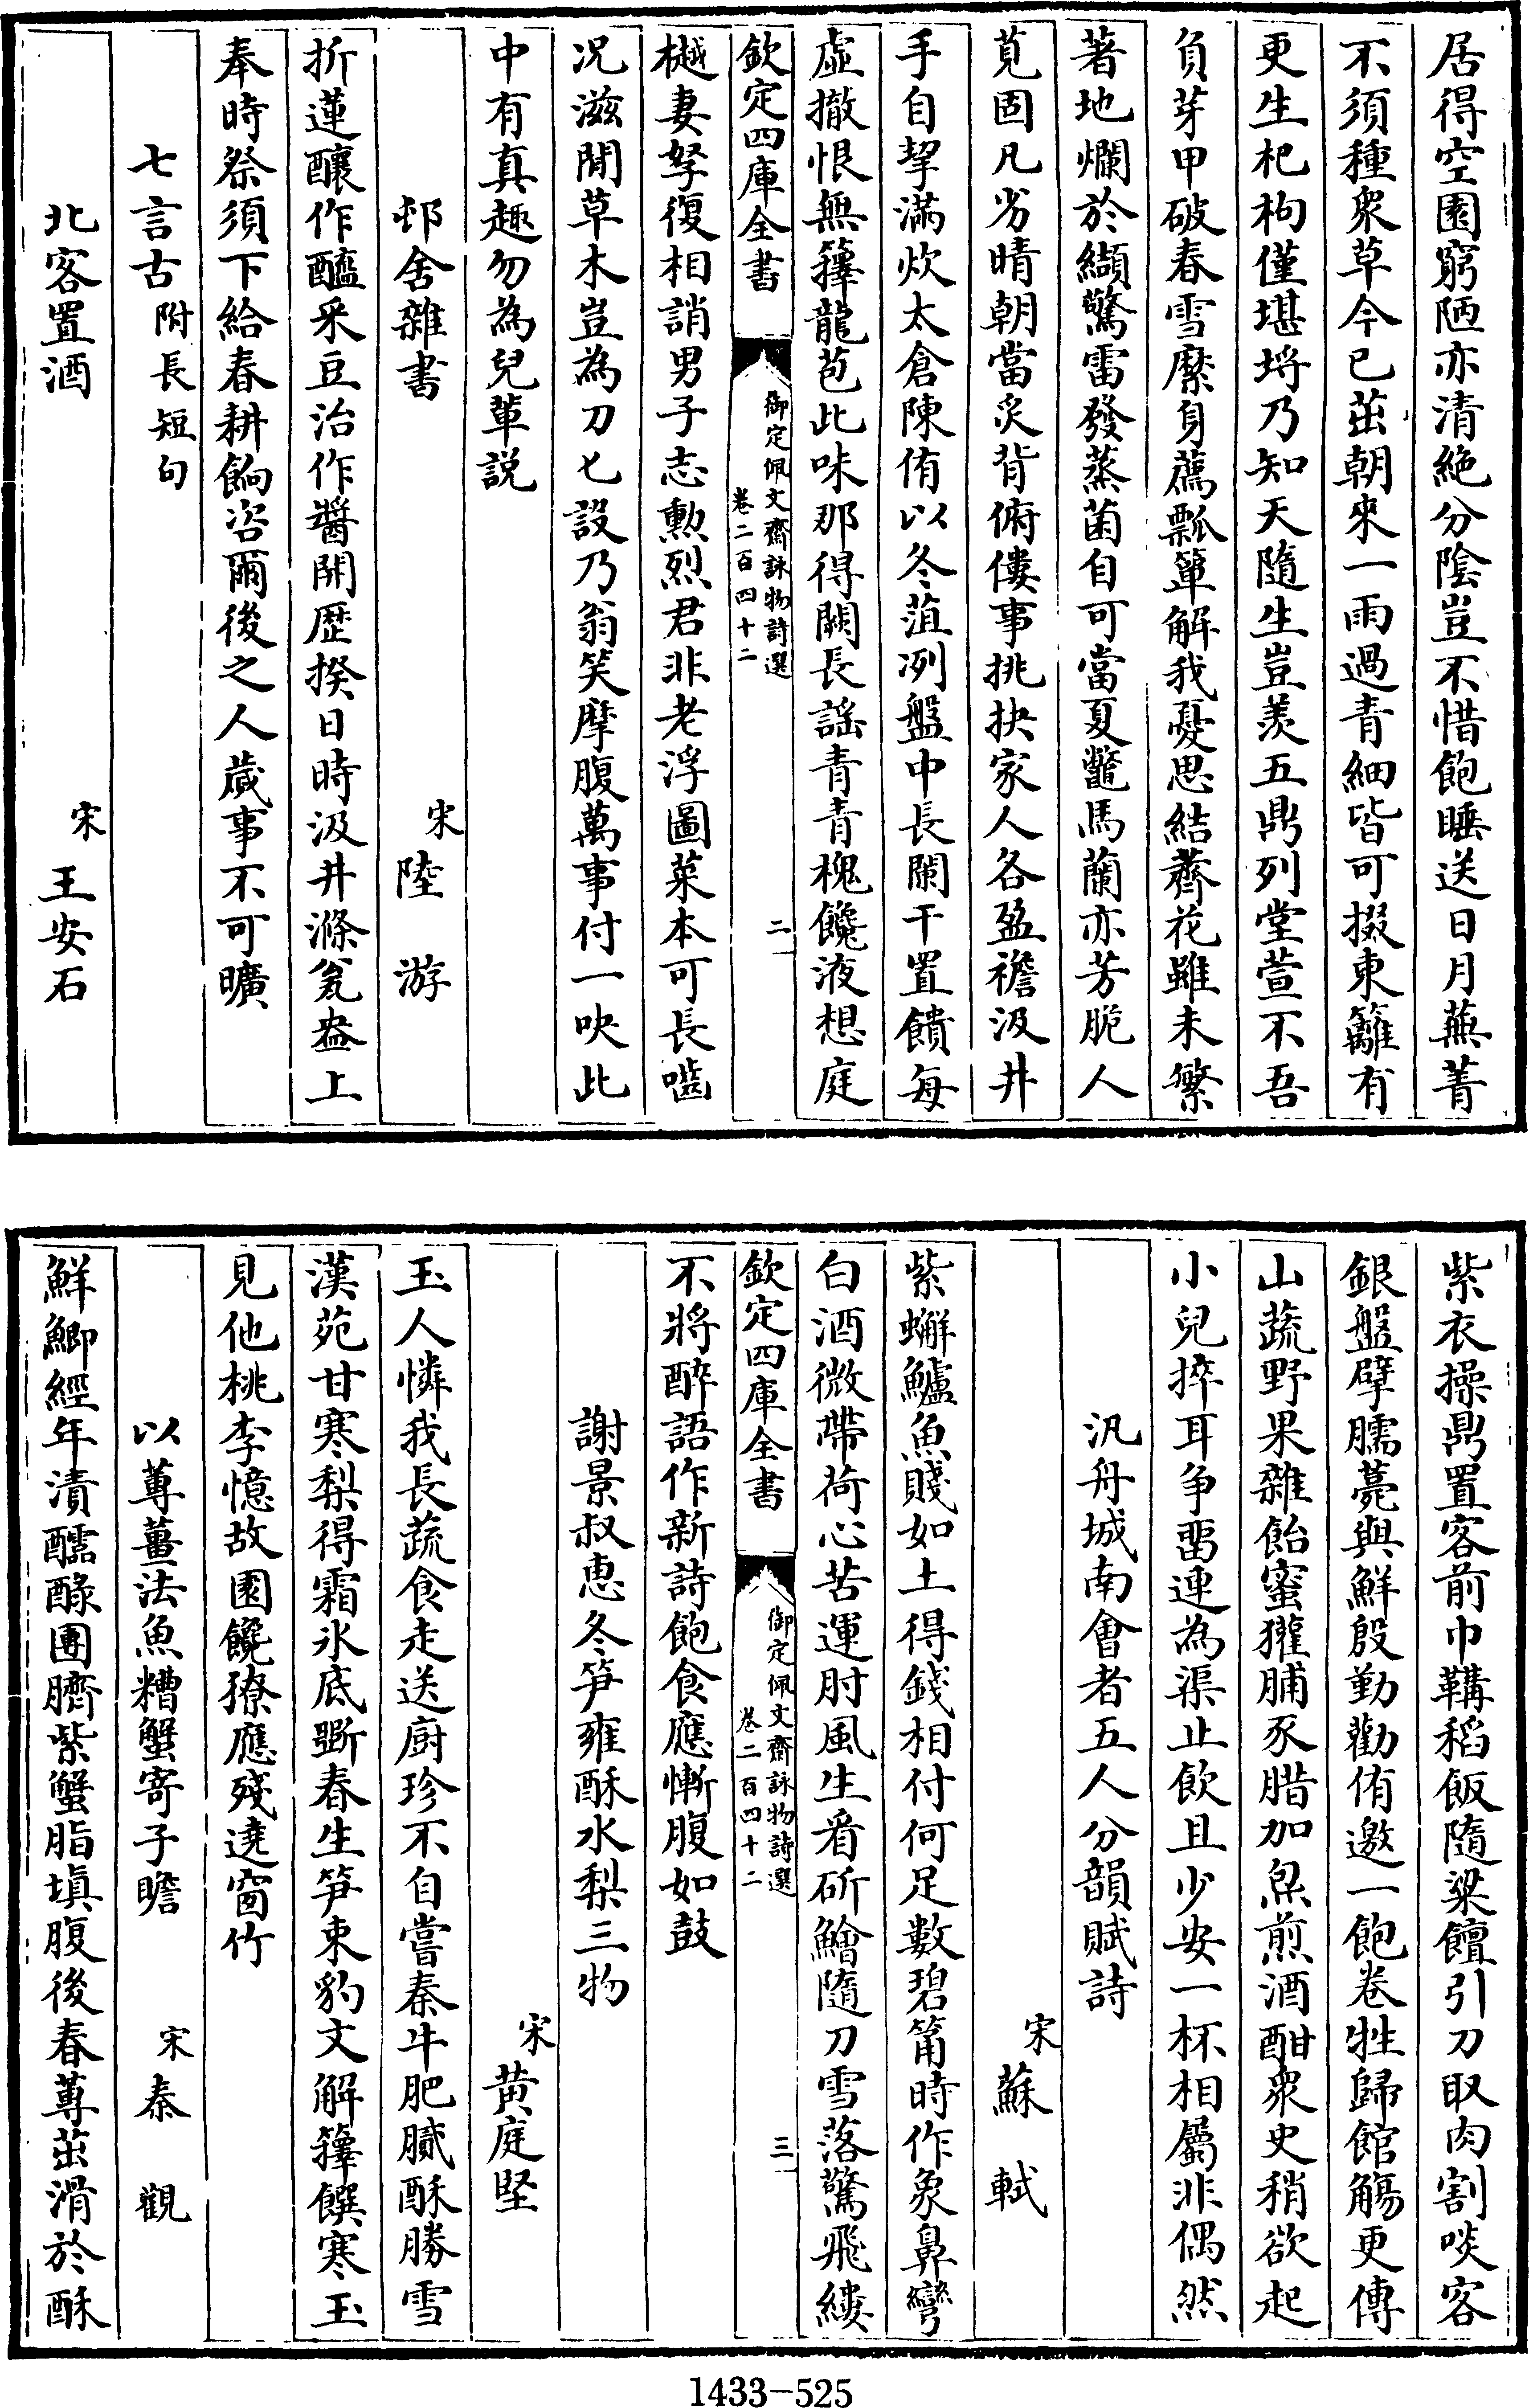 居得空園窮陋亦清絶分陰豈不惜飽睡送日月蕪菁
不須種衆草今已茁朝來一雨過青細皆可掇東籬有
更生杞枸僅堪埒乃知天隨生豈羨五鼎列堂萱不吾
負芽甲破春雪縻身薦瓢簞解我憂思結薺花雖未繁
著地爛於纈驚雷發蒸菌自可當夏鼈馬蘭亦芳脆人
莧固凡劣晴朝當炙背俯僂事挑抉家人各盈襜汲井
手自挈滿炊太倉陳侑以冬菹冽盤中長闌干置饋每
虛撤恨無籜龍苞此味那得闕長謡青青槐饞液想庭
欽定四庫全書
御定佩文齋詠物詩選
卷二百四十二
二
樾妻孥復相誚男子志勲烈君非老浮圖菜本可長嚙
况滋閒草木豈為刀匕設乃翁笑摩腹萬事付一吷此
中有真趣勿為兒輩説
邨舍雜書
宋陸游
折蓮釀作醯采豆治作醬開歴揆日時汲井滌瓮盎上
奉時祭須下給春耕餉咨爾後之人歲事不可曠
七言古附長短句
北客置酒
宋王安石
紫衣操鼎置客前巾韝稻飯隨粱饘引刀取肉割啖客
銀盤擘臑薧與鮮殷勤勸侑邀一飽卷牲歸館觴更傳
山蔬野果雜飴蜜獾脯豕腊加炰煎酒酣衆史稍欲起
小兒捽耳争畱連為渠止飲且少安一杯相屬非偶然
汎舟城南會者五人分韻賦詩
宋蘇軾
紫蠏鱸魚賤如土得錢相付何足數碧筩時作象鼻彎
白酒微帶荷心苦運肘風生看斫鱠隨刀雪落驚飛縷
欽定四庫全書
御定佩文齋詠物詩選
卷二百四十二
三
不將醉語作新詩飽食應慚腹如鼓
謝景叔惠冬笋雍酥水梨三物
宋黄庭堅
玉人憐我長蔬食走送厨珍不自嘗秦牛肥膩酥勝雪
漢苑甘寒梨得霜氷底斲春生笋束豹文解籜饌寒玉
見他桃李憶故園饞獠應殘遶窗竹
以蓴薑法魚糟蟹寄子瞻
宋秦觀
鮮鯽經年漬醽醁團臍紫蟹脂填腹後春蓴茁滑於酥
1433-525